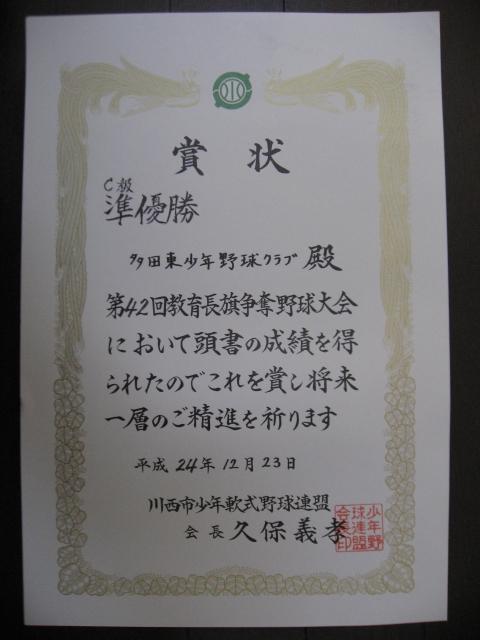 賞状
C級
準優勝
多田東少年野球クラブ 殿
第42回教育長旗争奪野球大会
において頭書の成績を得
られたのでこれを賞し将来
一層のご精進を祈ります
平成24年12月23日
川西市少年軟式野球連盟
会長 久保義孝
少年野
球連盟
会長印